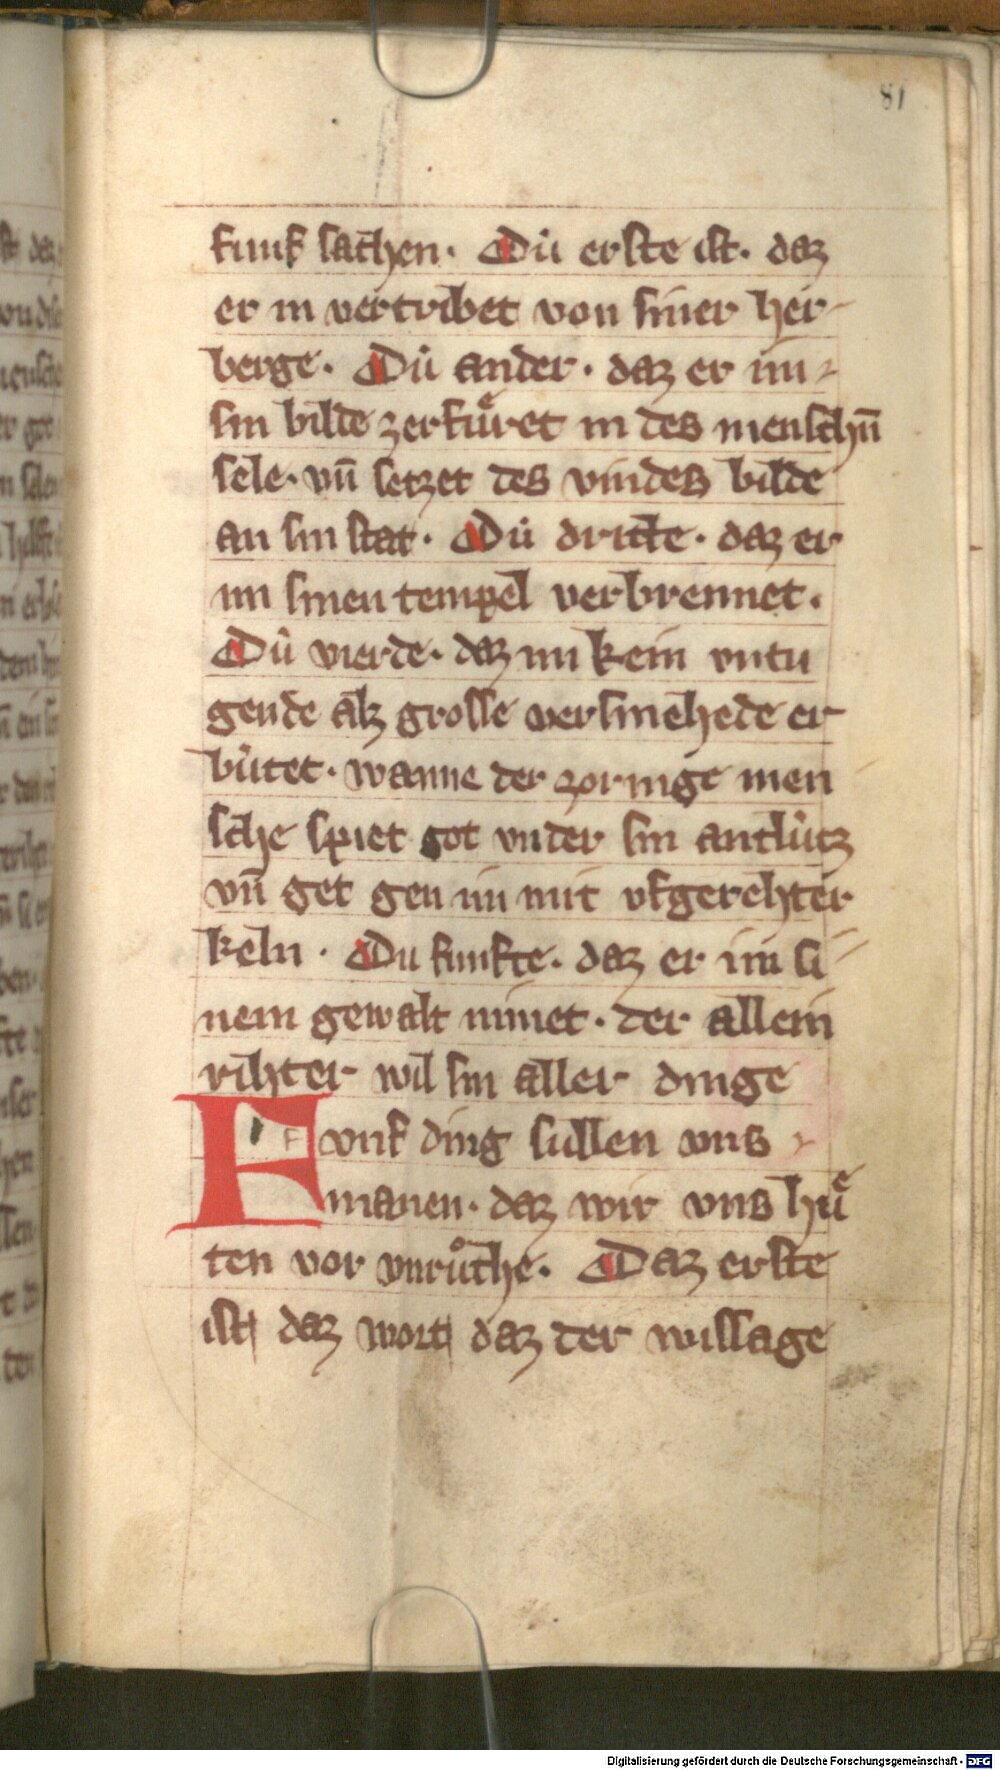 81
funf sachen. Dů erste ist. daz
er in vertribet von siner her-
berge. Dů ander. daz er im
sin bilde zerfůret in des menschn̄
sele. vn̄ setzet des vindes bilde
an sin stat. Dů dritte. daz er
im sinen tempel verbrennet.
Dů vierde. daz im kein vntu
gende alz grosse versmehede er
bůtet. wanne der zornige men
sche spiet got vnder sin antlůtz
vn̄ get gen im mit vfgerehter
keln. Du funfte. daz er im si-
nem gewalt nimet. der allein
rihter wil sin aller dinge
Fvnf ding sullen vns
manen. daz wir vns huͤ
ten vor vnruͦche. Daz erste
ist daz wort daz der wissage
Digitalisierung gefördert durch die Deutsche Forschungsgemeinschaft - DFG